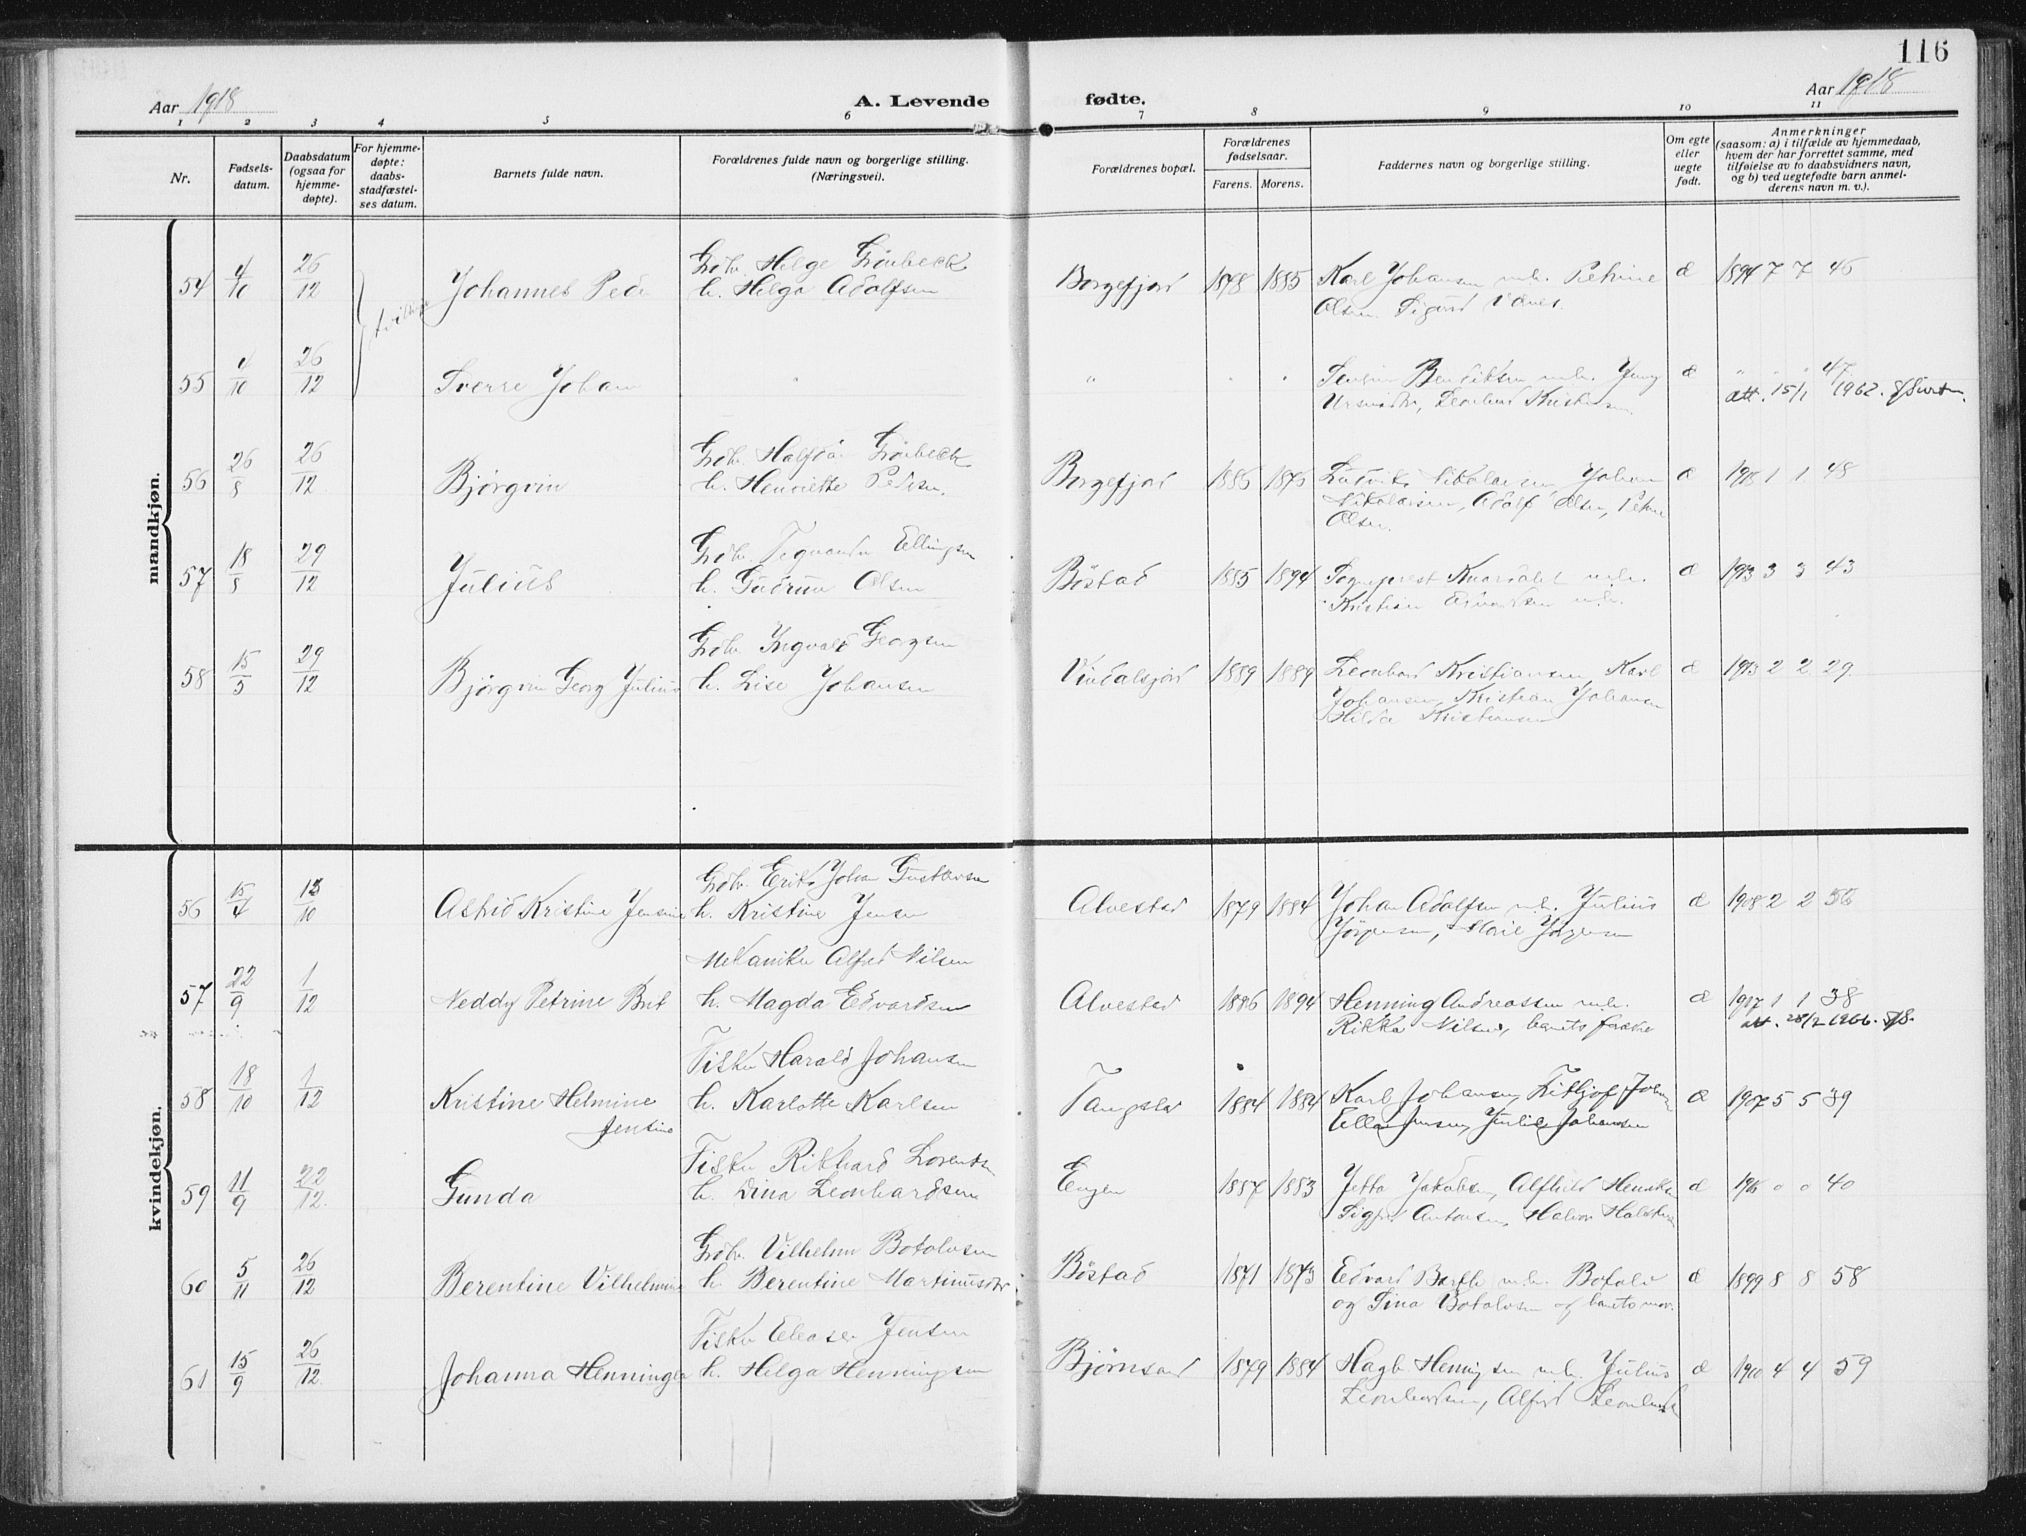 116
Aar 1918
A. Levende fødte.
Aar 1918
1 2 3 4 5 6 7 8 9 10 11
Nr.
Fødsels-
datum.
Daabsdatum
(ogsaa for
hjemme-
døpte).
For hjemme-
døpte:
daabs-
stadfæstel-
ses datum.
Barnets fulde navn.
Forældrenes fulde navn og borgerlige stilling.
(Næringsvei).
Forældrenes bopæl.
Forældrenes
fødselsaar.
Farens. Morens.
Faddernes navn og borgerlige stilling.
Om egte
eller
uegte
født.
Anmerkninger
(saasom: a) i tilfælde av hjemmedaab,
hvem der har forrettet samme, med
tilføielse av to daabsvidners navn,
og b) ved uegtefødte barn anmel-
derens navn m. v.).
mandkjøn.
Helge Grønbeck
54 4/10 26/12 Johannes h. Helga Adolfsen Borgefjord 1878 1885 Karl Johansen m.h. Petrine æ 1894 7 7 46
Olsen Sigurd
55 4/10 26/12 Sverre Johan " Bendiksen m.h. æ 47
att. 15/1 1962.
Halfdan Grønbeck
56 26/8 26/12 Bjørgvin h. Henriette Borgefjord 1886 1876 Ludvik Nikolaisen Johan æ 1918 1 1 48
Nikolaisen, Adolf Olsen, Petrine
Olsen.
Ellingsen
57 18/8 29/12 Julius h. Gudrun Olsen Bøstad 1885 1894 Sogneprest m.h. æ 1913 3 3 43
Kristian Edvardsen m.h.
Ingvald Georgsen
58 15/5 29/12 Bjørgvin Georg Julius h. Lise Johansen 1889 1889 Leonhard Kristiansen, Karl æ 1913 2 2 29.
Johansen, Kristian Johansen
Hilda Kristiansen
kvindekjøn.
Erik Johan Gustavsen
56 15/4 13/10 Astrid Kristine Jensine h. Kristine Jensen Alvestad 1879 1884 Johan Adolfsen m.h. Julius æ 1908 2 2
Jørgensen, Marie Jørgensen
Mekaniker Alfred Nilsen
57 22/9 1/12 Neddy Petrine h. Magda Edvardsen Alvestad 1886 1894 Henning Andreassen m.h. æ 1917 1 1 38
Rikka Nilsen, barnets forældre att. 28/2 1966.
Fisker Harald Johansen
58 18/10 1/12 Kristine Helmine h. Karlotte Karlsen Tangstad 1884 1884 Karl Johansen, æ 1907 5 5 39
Jensine Jensen, Julie Johansen
Fisker Rikhard Lorentsen
59 11/9 22/12. Gunda h. Dina Leonhardsen Engen 1887 1883 Jetta Jakobsen, Alfhild æ 0 0 40
Antonsen, Halvor
Vilhelm Botolvsen
60 5/11 26/12 Berentine Vilhelmine h. Berentine Martinusdtr. Bøstad 1871 1873 Edvard m.h. Botolv æ 1899 8 8 58
og Tina Botolvsen og barnets mor.
Fisker Eleaser Jensen
61 15/9 26/12. Johanna h. Helga Henningsen 1879 1884 Hagb. Henningsen m.h. Julius æ 1910 4 4 59
Leonhardsen, Alfred